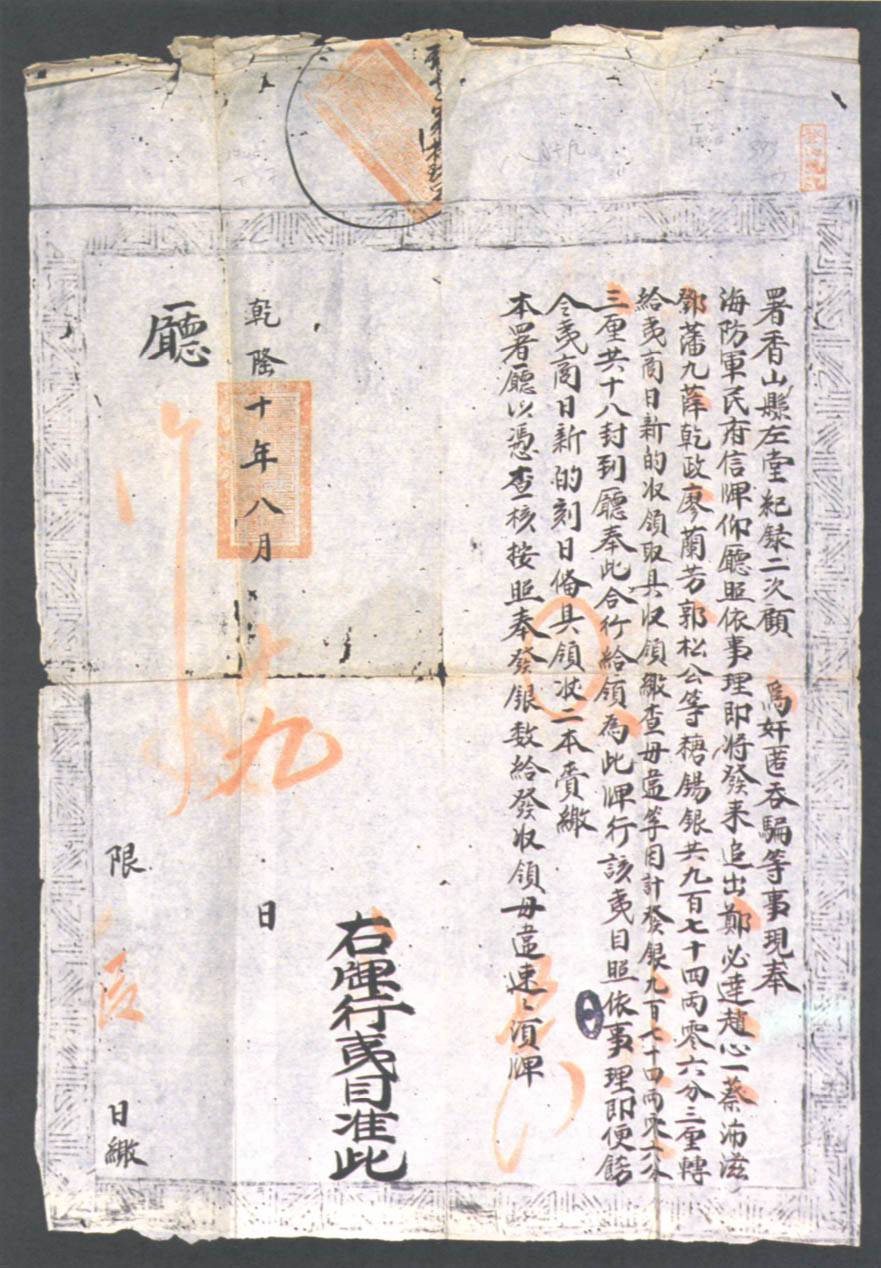 署香山縣左堂紀録二次顧 為奸匿吞騙等事現奉
海防軍民府信牌仰廳照依事理即將發来追出鄭必達趙心一蔡沛滋
鄧藩九薛乾政廖蘭芳郭松公等糖錫銀共九百七十四兩零六分三厘轉
給夷商日新的收領取具收領繳查毋違等因計發銀九百七十四兩零六分
三厘共十八封到廳奉此合行給領為此牌行該夷目照依事理即便飭
令夷商日新的刻日俻具領狀二本賫繳
本署廳以憑查核按照奉發銀数給發收領毋違速〻須牌
右牌行夷目准此
乾隆十年八月 十九 日
廳
限 日繳